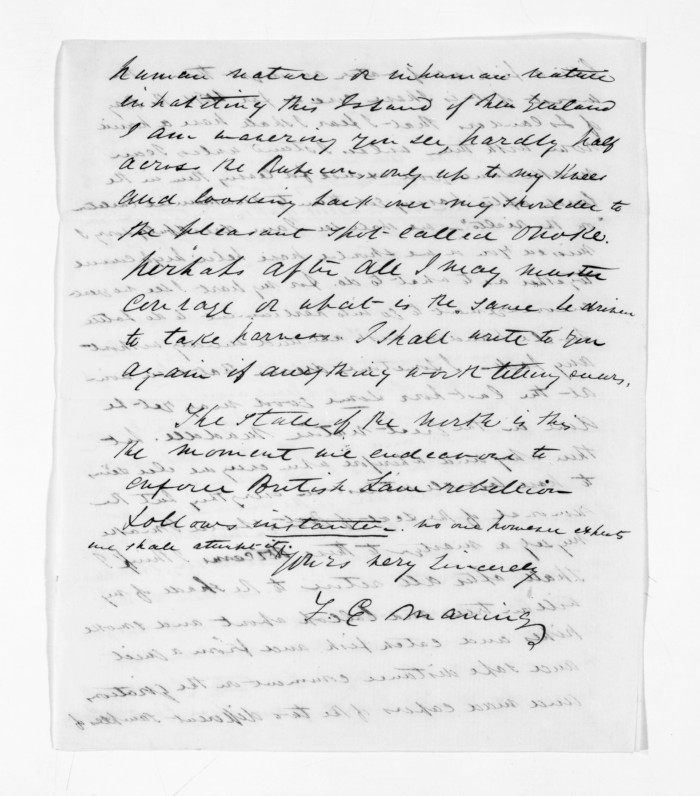 human nature or inhuman nature
inhabiting this Island of New Zealand
I am wavering you see, hardly half
across the Rubicon only up to my knees
and looking back over my shoulder to
the pleasant spot called Onoke.
perhaps after all I may muster
courage or what is the same be driven
to take harness. I shall write to you
again if anything worth telling occurs.
The state of the North is this
the moment we endeavour to
enforce British Law rebellion
follows instanter. no one however expects
we shall attempt it.
Yours very Sincerely
F E Maning